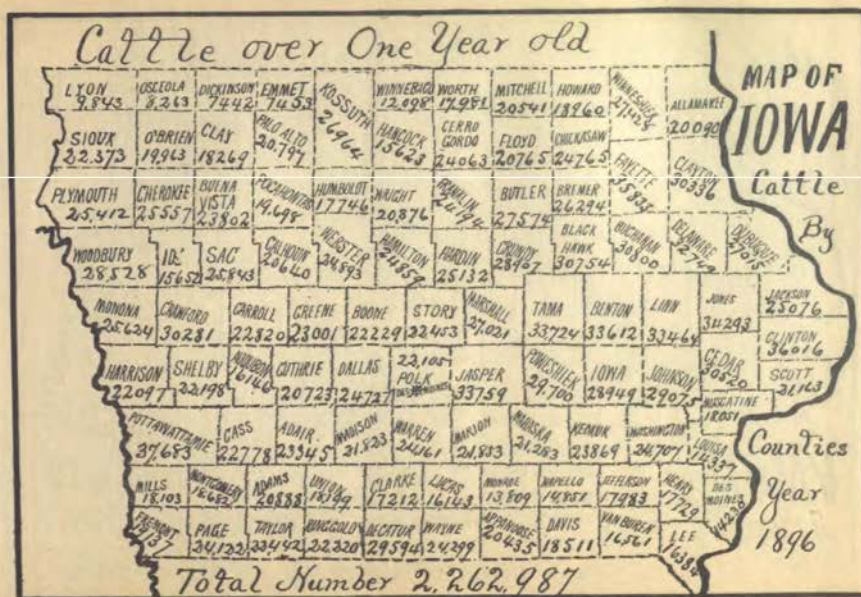 Cattle over One Year old
MAP OF
IOWA
Cattle
By
Counties
Year
1896
LYON
9,843
OSCEOLA
8,263
DICKINSON
7442
EMMET
7453
KOSSUTH
26964
WINNEBAGO
12,098
WORTH
17,981
MITCHELL
20541
HOWARD
18960
WINNESHIEK
ALLAMAKEE
20090
SIOUX
22,373
O'BRIEN
19,963
CLAY
18269
PALO ALTO
20,797
HANCOCK
15623
CERRO
GORDO
24063
FLOYD
20765
CHICKASAW
24765
FAYETTE
35835
CLAYTON
30336
PLYMOUTH
25,412
CHEROKEE
25557
BUENA
VISTA
23802
POCAHONTAS
19,698
HUMBOLDT
17746
WRIGHT
20,876
FRANKLIN
24194
BUTLER
27574
BREMER
26294
WOODBURY
28,528
IDA
15652
SAC
25,843
CALHOUN
20640
WEBSTER
24,893
HAMILTON
24859
HARDIN
25132
GRUNDY
28907
BLACK
HAWK
30754
BUCHANAN
30800
DELAWARE
32749
DUBUQUE
27015
MONONA
25624
CRAWFORD
30281
CARROLL
22820
GREENE
23001
BOONE
22229
STORY
22453
MARSHALL
27,021
TAMA
33,724
BENTON
33612
LINN
33464
JONES
34293
JACKSON
25076
CLINTON
36016
HARRISON
22097
SHELBY
22,198
AUDUBON
16146
GUTHRIE
20723
DALLAS
24727
22,105
POLK
DES MOINES
JASPER
33759
POWESHIEK
29,700
IOWA
28949
JOHNSON
29075
CEDAR
30520
SCOTT
21,163
MUSCATINE
18051
POTTAWATTAMIE
37,683
CASS
22778
ADAIR
23345
MADISON
21,823
WARREN
24,161
MARION
21,833
MAHASKA
21,283
KEOKUK
23869
WASHINGTON
24,707
LOUISA
14337
MILLS
18,103
MONTGOMERY
18,682
ADAMS
20888
UNION
18,199
CLARKE
17212
LUCAS
16143
MONROE
13,809
WAPELLO
14,851
JEFFERSON
17983
HENRY
17729
DES
MOINES
14230
FREMONT
14137
PAGE
24,122
TAYLOR
22442
RINGGOLD
22220
DECATUR
29594
WAYNE
24,299
APPANOOSE
20435
DAVIS
18511
VAN BUREN
16,561
LEE
16384
Total Number 2,262,987